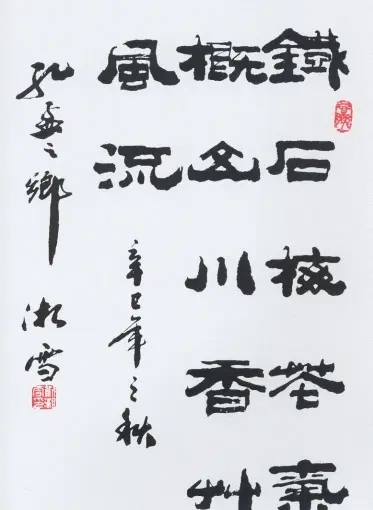 鐵石梅花氣
概山川香艸
風流
辛巳年之秋
孔孟之鄉 雪